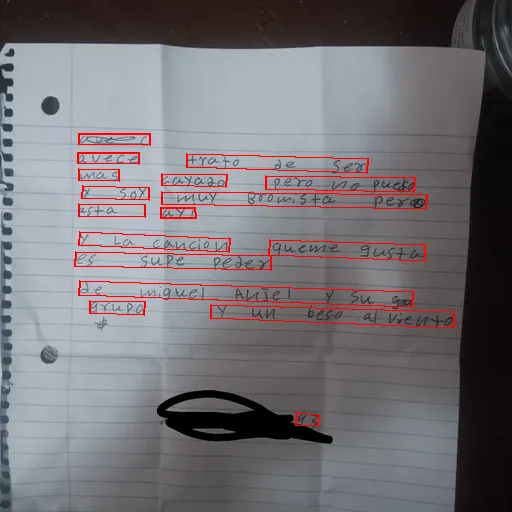 avece trato de ser
mas cayado pero no puedo
y soy muy Bromista pero
asta ayi
y La cancion queme gusta
es supe peder
de miguel Anjel y su
grupo y un beso al viento